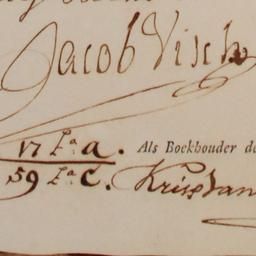 Jacob Visch
17 Lᵃ a. Als Boekhouder d
59 Lᵃ C.